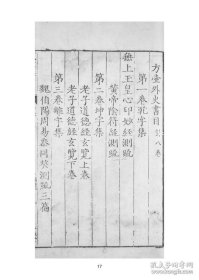 方壺外史書目八卷
第一卷乾字集
無上玉皇心印妙經測疏
黃帝陰符經測疏
第二卷坤字集
老子道德經玄覽上卷
老子道德經玄覽下卷
第三卷離字集
魏伯陽周易參同契測疏三篇
17